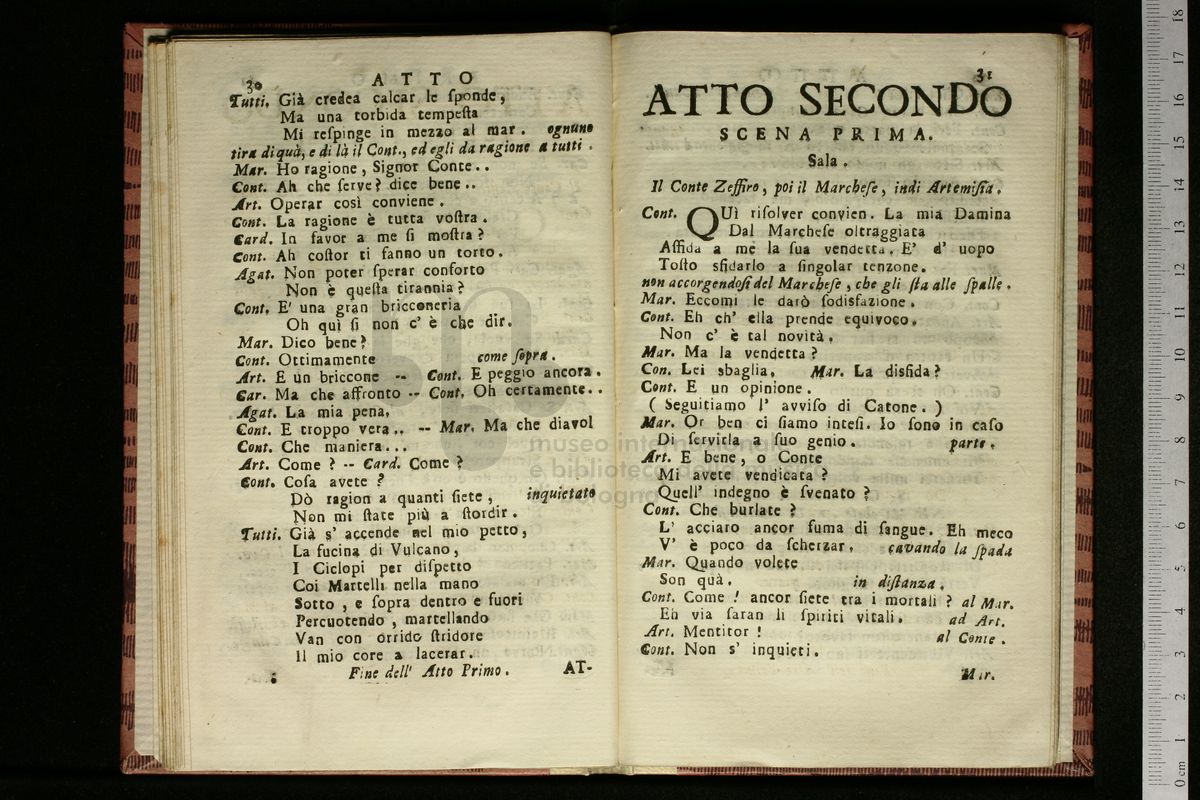 30 ATTO
Tutti. Già credea calcar le ſponde,
Ma una torbida tempeſta
Mi reſpinge in mezzo al mar. ognuno
tira di quà, e di là il Cont., ed egli da ragione a tutti.
Mar. Ho ragione, Signor Conte..
Cont. Ah che ſerve? dice bene..
Art. Operar così conviene.
Cont. La ragione è tutta voſtra.
Card. In favor a me ſi moſtra?
Cont. Ah coſtor ti fanno un torto.
Agat. Non poter ſperar conforto
Non è queſta tirannia?
Cont. E' una gran bricconeria
Oh quì ſi non c' è che dir.
Mar. Dico bene?
Cont. Ottimamente come ſopra.
Art. E un briccone -- Cont. E peggio ancora.
Car. Ma che affronto -- Cont. Oh certamente..
Agat. La mia pena,
Cont. E troppo vera.. -- Mar. Ma che diavol
Cont. Che maniera...
Art. Come? -- Card. Come?
Cont. Coſa avete?
Dò ragion a quanti ſiete, inquietato
Non mi ſtate più a ſtordir.
Tutti. Già s' accende nel mio petto,
La fucina di Vulcano,
I Ciclopi per diſpetto
Coi Martelli nella mano
Sotto, e ſopra dentro e fuori
Percuotendo, martellando
Van con orrido ſtridore
Il mio core a lacerar.
Fine dell' Atto Primo. AT-
31
ATTO SECONDO
SCENA PRIMA.
Sala.
Il Conte Zeffiro, poi il Marcheſe, indi Artemiſia.
Cont. QUì riſolver convien. La mia Damina
Dal Marcheſe oltraggiata
Affida a me la ſua vendetta. E' d' uopo
Toſto sfidarlo a ſingolar tenzone.
non accorgendoſi del Marcheſe, che gli ſta alle ſpalle.
Mar. Eccomi le darò ſodisfazione.
Cont. Eh ch' ella prende equivoco.
Non c' è tal novità.
Mar. Ma la vendetta?
Con. Lei sbaglia, Mar. La disfida?
Cont. E un opinione.
( Seguitiamo l' avviſo di Catone. )
Mar. Or ben ci ſiamo inteſi. Io ſono in caſo
Di ſervirla a ſuo genio. parte.
Art. E bene, o Conte
Mi avete vendicata?
Quell' indegno è ſvenato?
Cont. Che burlate?
L' acciaro ancor fuma di ſangue. Eh meco
V' è poco da ſcherzar. cavando la ſpada
Mar. Quando volete
Son quà. in diſtanza.
Cont. Come! ancor ſiete tra i mortali? al Mar.
Eh via ſaran li ſpiriti vitali. ad Art.
Art. Mentitor! al Conte.
Cont. Non s' inquieti.
Mar.
museo internazionale
e biblioteca della musica
di bologna